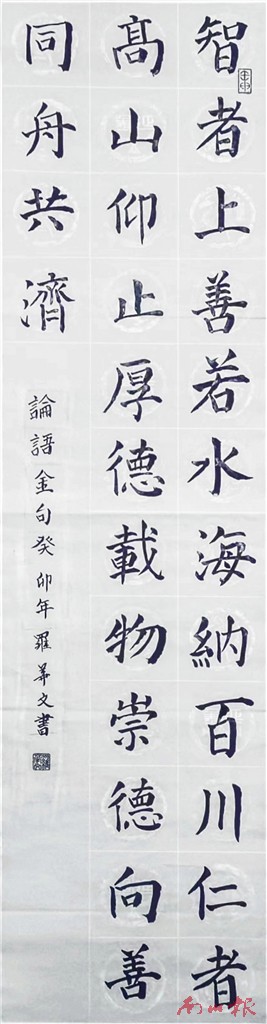 智者上善若水海納百川仁者
高山仰止厚德載物崇德向善
同舟共濟
論語金句癸卯年羅華文書